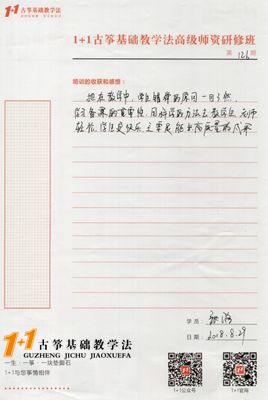 1+1 古筝基础教学法
1+1古筝基础教学法高级师资研修班
第 126 期
培训的收获和感想:
在教学中,学生错误的原因一目了然,
的重要性 用科学的方法去教学生 老师
轻松,学生更快乐 高质量的成果
学员:
日期: 2018.8.29
1+1 古筝基础教学法
GUZHENG JICHU JIAOXUEFA
一生·一筝·一块垫脚石
1+1与您筝情相伴
1+1公众号
1+1官网